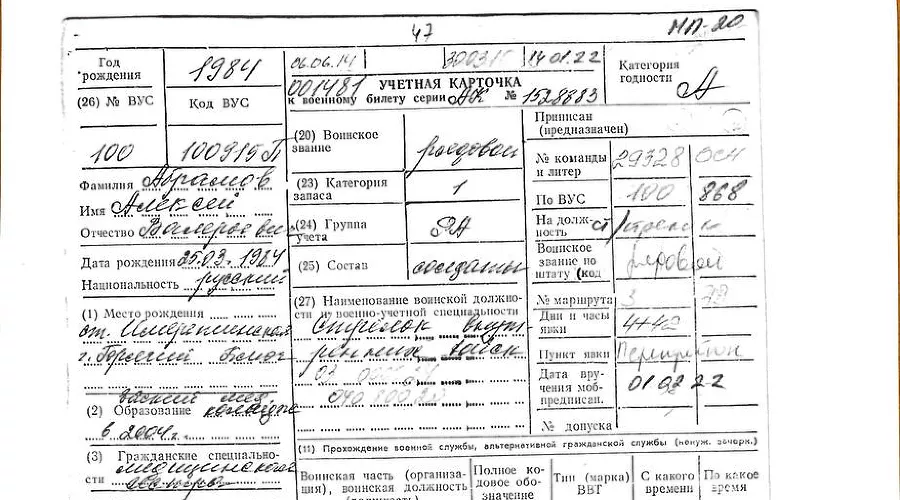 47
МП-20
Год рождения
1984
06.06.14
300315
14.01.22
Категория годности
А
001481
УЧЕТНАЯ КАРТОЧКА
к военному билету серии АК № 1528883
(26) № ВУС
Код ВУС
100
100915П
(20) Воинское звание
рядовой
(23) Категория запаса
1
(24) Группа учета
РА
(25) Состав
солдаты
Приписан (предназначен)
№ команды и литер
29328
По ВУС
100
868
На долж- ность
стрелок
Воинское звание по штату (код
рядовой
№ маршрута
3
Дни и часы явки
4+42
Пункт явки
Дата вру- чения моб- предписан.
01 02 22
№ допуска
Фамилия Абрамов
Имя Алексей
Отчество Валерьевич
Дата рождения 25.03.1984
Национальность русский
(1) Место рождения
г. Горячий Ключ
(2) Образование
мед. колледж
в 2004 г.
(3) Гражданские специально- сти
медицинский
(27) Наименование воинской должно- сти и военно-учетной специальности
Стрелок внут
ренних войск
(11) Прохождение военной службы, альтернативной гражданской службы (ненуж. зачерк.)
Воинская часть (организа- ция), воинская должность
Полное ко- довое обо- значение
Тип (марка) ВВТ
С какого времени
По какое время